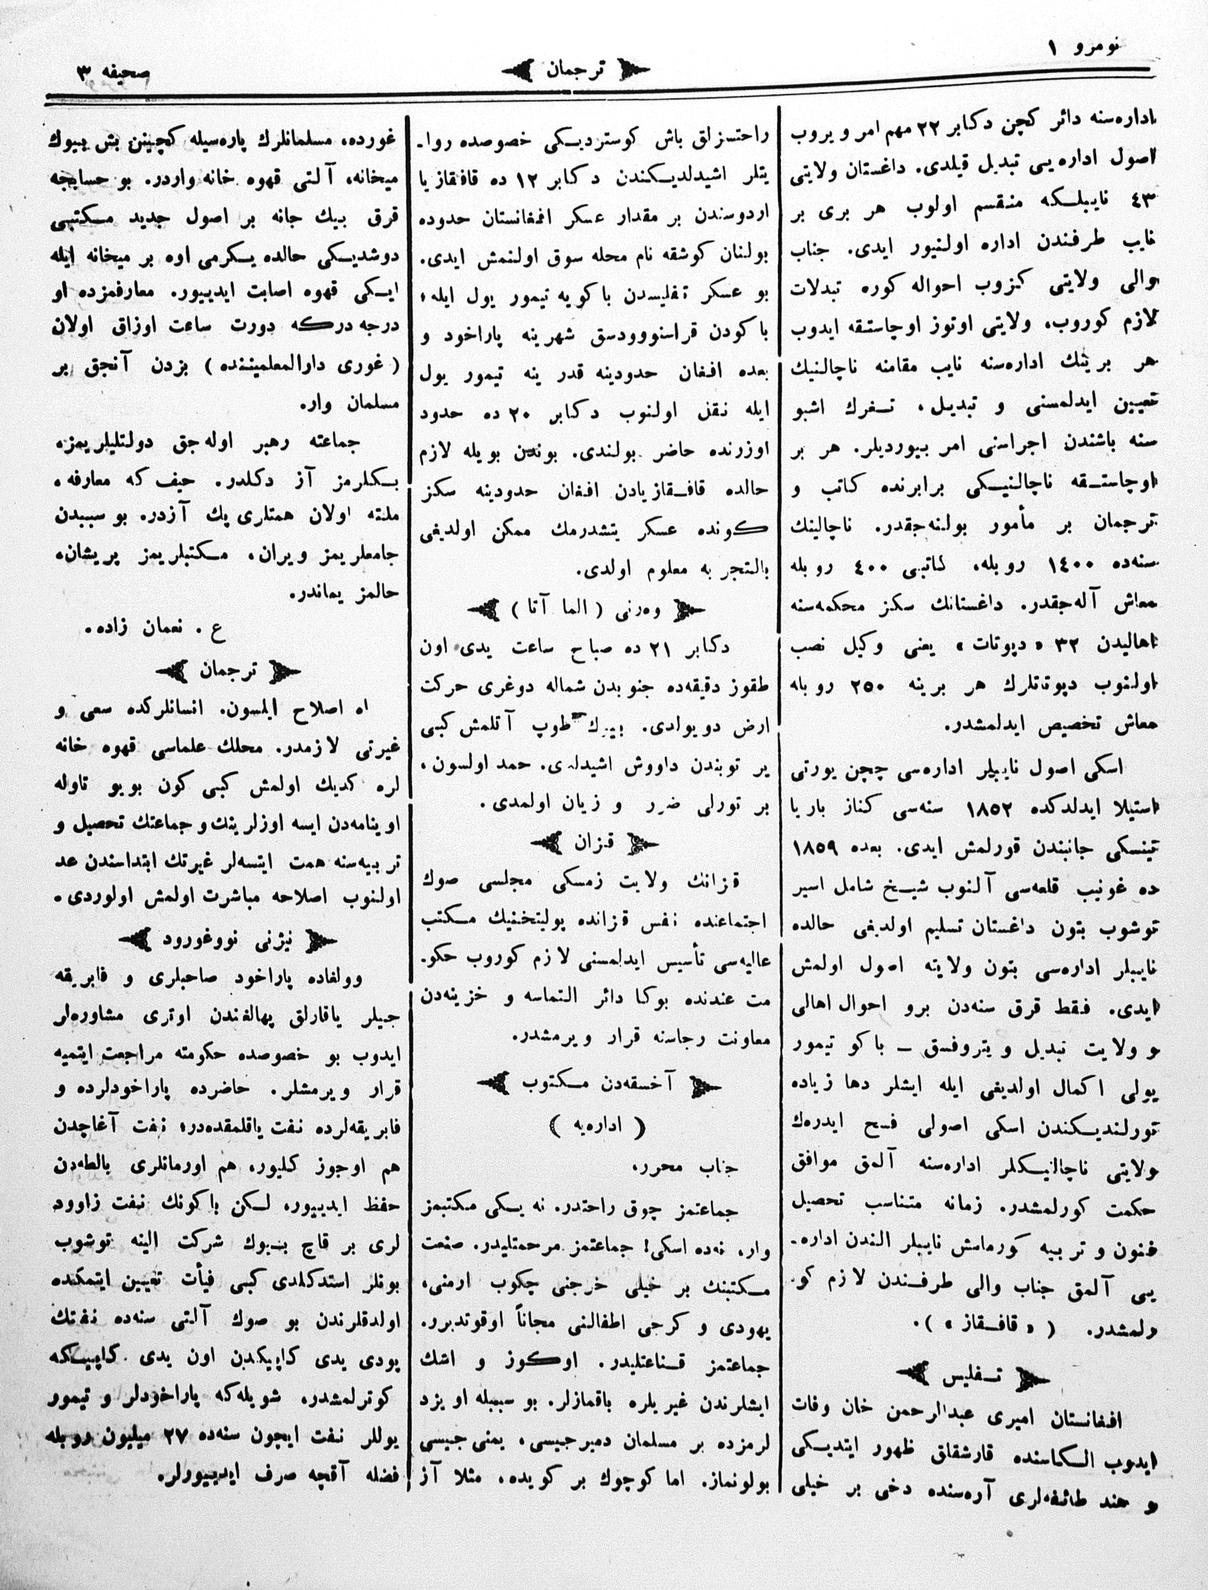 نومرو ١
ترجمان
صحیفه ٣
اداره‌سنه دائر كچن دكابر ٢٢ مهم امر ویروب
اصول اداره‌یی تبدیل قیلدی. داغستان ولایتی
٤٣ نایبلـكه منقسم اولوب هر بری بر
نایب طرفندن اداره اولنیور ایدی. جناب
والی ولایتی كزوب احواله كوره تبدلات
لازم كوروب، ولایتی اوتوز اوچاستقه ایدوب
هر برینك اداره‌سنه نایب مقامنه ناچالنیك
تعیین ایدلمسنی و تبدیل، تـغرك اشبو
سنه باشندن اجراسنی امر بیوردیلر. هر بر
اوچاستـقه ناچالنیـكی برابرنده كاتب و
ترجمان بر مأمور بولنه‌جقدر. ناچالینك
سنه‌ده ١٤٠٠ روبله، كاتبی ٤٠٠ روبله
معاش آله‌جقدر. داغستانك سكز محكمه‌سنه
اهالیدن ٣٢ «دپوتات» یعنی وكیل نصب
اولنوب دپوتاتلرك هر برینه ٢٥٠ روبله
معاش تخصیص ایدلمشدر.
اسكی اصول نایبلر اداره‌سی چچن یورتی
استیلا ایدلدكده ١٨٥٢ سنه‌سی كناز باریا
تینسكی جانبندن قورلمش ایدی. بعده ١٨٥٩
ده غونیب قلعه‌سی آلنوب شیـخ شامل اسیر
توشوب بتون داغستان تسلیم اولدیغی حالده
نایبلر اداره‌سی بتون ولایته اصول اولمش
ایدی. فقط قرق سنه‌دن برو احوال اهالی
و ولایت تبدیل و پتروفسق ـ باكو تیمور
یولی اكمال اولدیغی ایله ایشلر دها زیاده
تورلندیـكندن اسكی اصولی فسخ ایدرك
ولایتی ناچالنیـكلر اداره‌سنه آلمق موافق
حكمت كورلمشدر. زمانه متناسب تحصیل
فنون و تربیه كورمامش نایبلر الندن اداره‌ـ
یی آلمق جناب والی طرفـندن لازم كو.
رلمشدر. ( «قافـقاز» ).
تـفلیس
افغانستان امیری عبدالرحمن خان وفات
ایدوب الـكاسنده قارشقلق ظهور ایتدیـكی
و هند طائفه‌لری آره‌سنده دخی بر خیلی
راحتسزلق باش كوستردیـكی خصوصده روا.
یتلر اشیدلدیـكندن دكابر ١٢ ده قافقازیا
اردوسندن بر مقدار عسكر افغانستان حدوده
بولنان كوشقه نام محله سوق اولنمش ایدی.
بو عسكر تفلیسدن باكویه تیمور یول ایله؛
باكودن قراسنووودسق شهرینه پاراخود و
بعده افـغان حدودینه قدر ینه تیمور یول
ایله نـقل اولنوب دكابر ٢٠ ده حدود
اوزرنده حاضر بولندی. بوندن بویله لازم
حالده قافـقازیادن افغان حدودینه سكز
كونده عسكر یتشدرمك ممكن اولدیغی
بالتجربه معلوم اولدی.
وه‌رنی (الما آتا)
دكابر ٢١ ده صباح ساعت یدی اون
طقوز دقیقه‌ده جنوبدن شماله دوغری حركت
ارض دویولدی. بیوك طوپ آتلمش كبی
یر توبندن داووش اشیدلدی. حمد اولسون،
بر تورلی ضرر و زیان اولمدی.
قزان
قزانك ولایت زمسكی مجلسی صوك
اجتماعنده نفس قزانده پولیتخنیك مكتب
عالیه‌سی تأسیس ایدلمسنی لازم كوروب حكو.
مت عندنده بوكا دائر التماسه و خزینه‌دن
معاونت رجاسنه قرار ویرمشدر.
آخسقه‌دن مـكتوب
( اداره‌یه )
جناب محرر،
جماعتمز چوق راحتدر. نه یـكی مكتبمز
وار، نه‌ده اسكی! جماعتمز مرحمتلیدر. صنعت
مـكتبنك بر خیلی خرجنی چكوب ارمنی،
یهودی و كرجی اطفالنی مجاناً اوقوتدیرر.
جماعتمز قـناعتلیدر. اوكوز و اشك
ایشلرندن غیریلره باقمازلر. بو سببله اویزد
لرمزده بر مسلمان دمیرجیسی، یمنی‌جیسی
بولونماز. اما كوچوك بر كویده، مثلا آز
غورده، مسلمانلرك پاره‌سیله كچینن بش بیوك
میخانه، آلتی قهوه خانه واردر. بو حسابجه
قرق بیك جانه بر اصول جدید مـكتبی
دوشدیـكی حالده یـكرمی اوه بر میخانه ایله
ایـكی قهوه اصابت ایدییور. معارفمزده او
درجه دركه دورت ساعت اوزاق اولان
( غوری دارالمعلمیننده ) بزدن آنجق بر
مسلمان وار.
جماعته رهبر اوله‌جق دولتلیلریمز،
بـكلرمز آز دكلدر. حیف كه معارفه،
ملته اولان همتلری پك آزدر. بو سببدن
جامعلریمز ویران، مـكتبلریمز پریشان،
حالمز یماندر.
ع. نعمان زاده.
ترجمان
اه اصلاح ایلسون. انسانلركده سعی و
غیرتی لازمدر. محلك علماسی قهوه خانه
لره كدیك اولمش كبی كون بویو تاوله
اوینامه‌دن ایسه اوزلرینك و جماعتك تحصیل و
تربیه‌سنه همت ایتسه‌لر غیرتك ابتداسندن عد
اولنوب اصلاحه مباشرت اولمش اولوردی.
نیژنی نووغورود
وولغاده پاراخود صاحبلری و فابریقه
جیلر یاقارلق پهالغندن اوتری مشاوره‌لر
ایدوب بو خصوصده حكومته مراجعت ایتمیه
قرار ویرمشلر. حاضرده پاراخودلرده و
فابریقه‌لرده نفت یاقلمقده‌در؛ نفت آغاچدن
هم اوجوز كلیور، هم اورمانلری بالطه‌دن
حفظ ایدییور، لـكن باكونك نفت زاوود
لری بر قاچ بیوك شركت الینه توشوب
بونلر استدكلدی كبی فیأت تعیین ایتمكده
اولدقلرندن بو صوك آلتی سنه‌ده نفتك
پودی یدی كاپیكدن اون یدی كاپیـكه
كوترلمشدر، شویله‌كه پاراخودلر و تیمور
یوللر نفت ایچون سنه‌ده ٢٧ میلیون روبله
فضله آقچه صرف ایدییورلر.